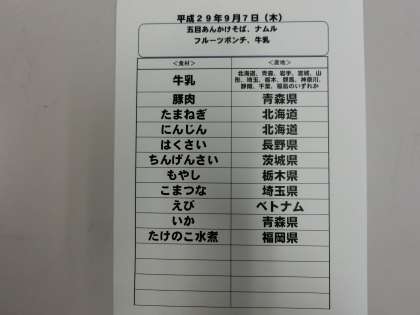 平成29年9月7日（木）
五目あんかけそば、ナムル
フルーツポンチ、牛乳
＜食材＞ ＜産地＞
牛乳 北海道、青森、岩手、宮城、山形、埼玉、栃木、群馬、神奈川、静岡、千葉、福島のいずれか
豚肉 青森県
たまねぎ 北海道
にんじん 北海道
はくさい 長野県
ちんげんさい 茨城県
もやし 栃木県
こまつな 埼玉県
えび ベトナム
いか 青森県
たけのこ水煮 福岡県